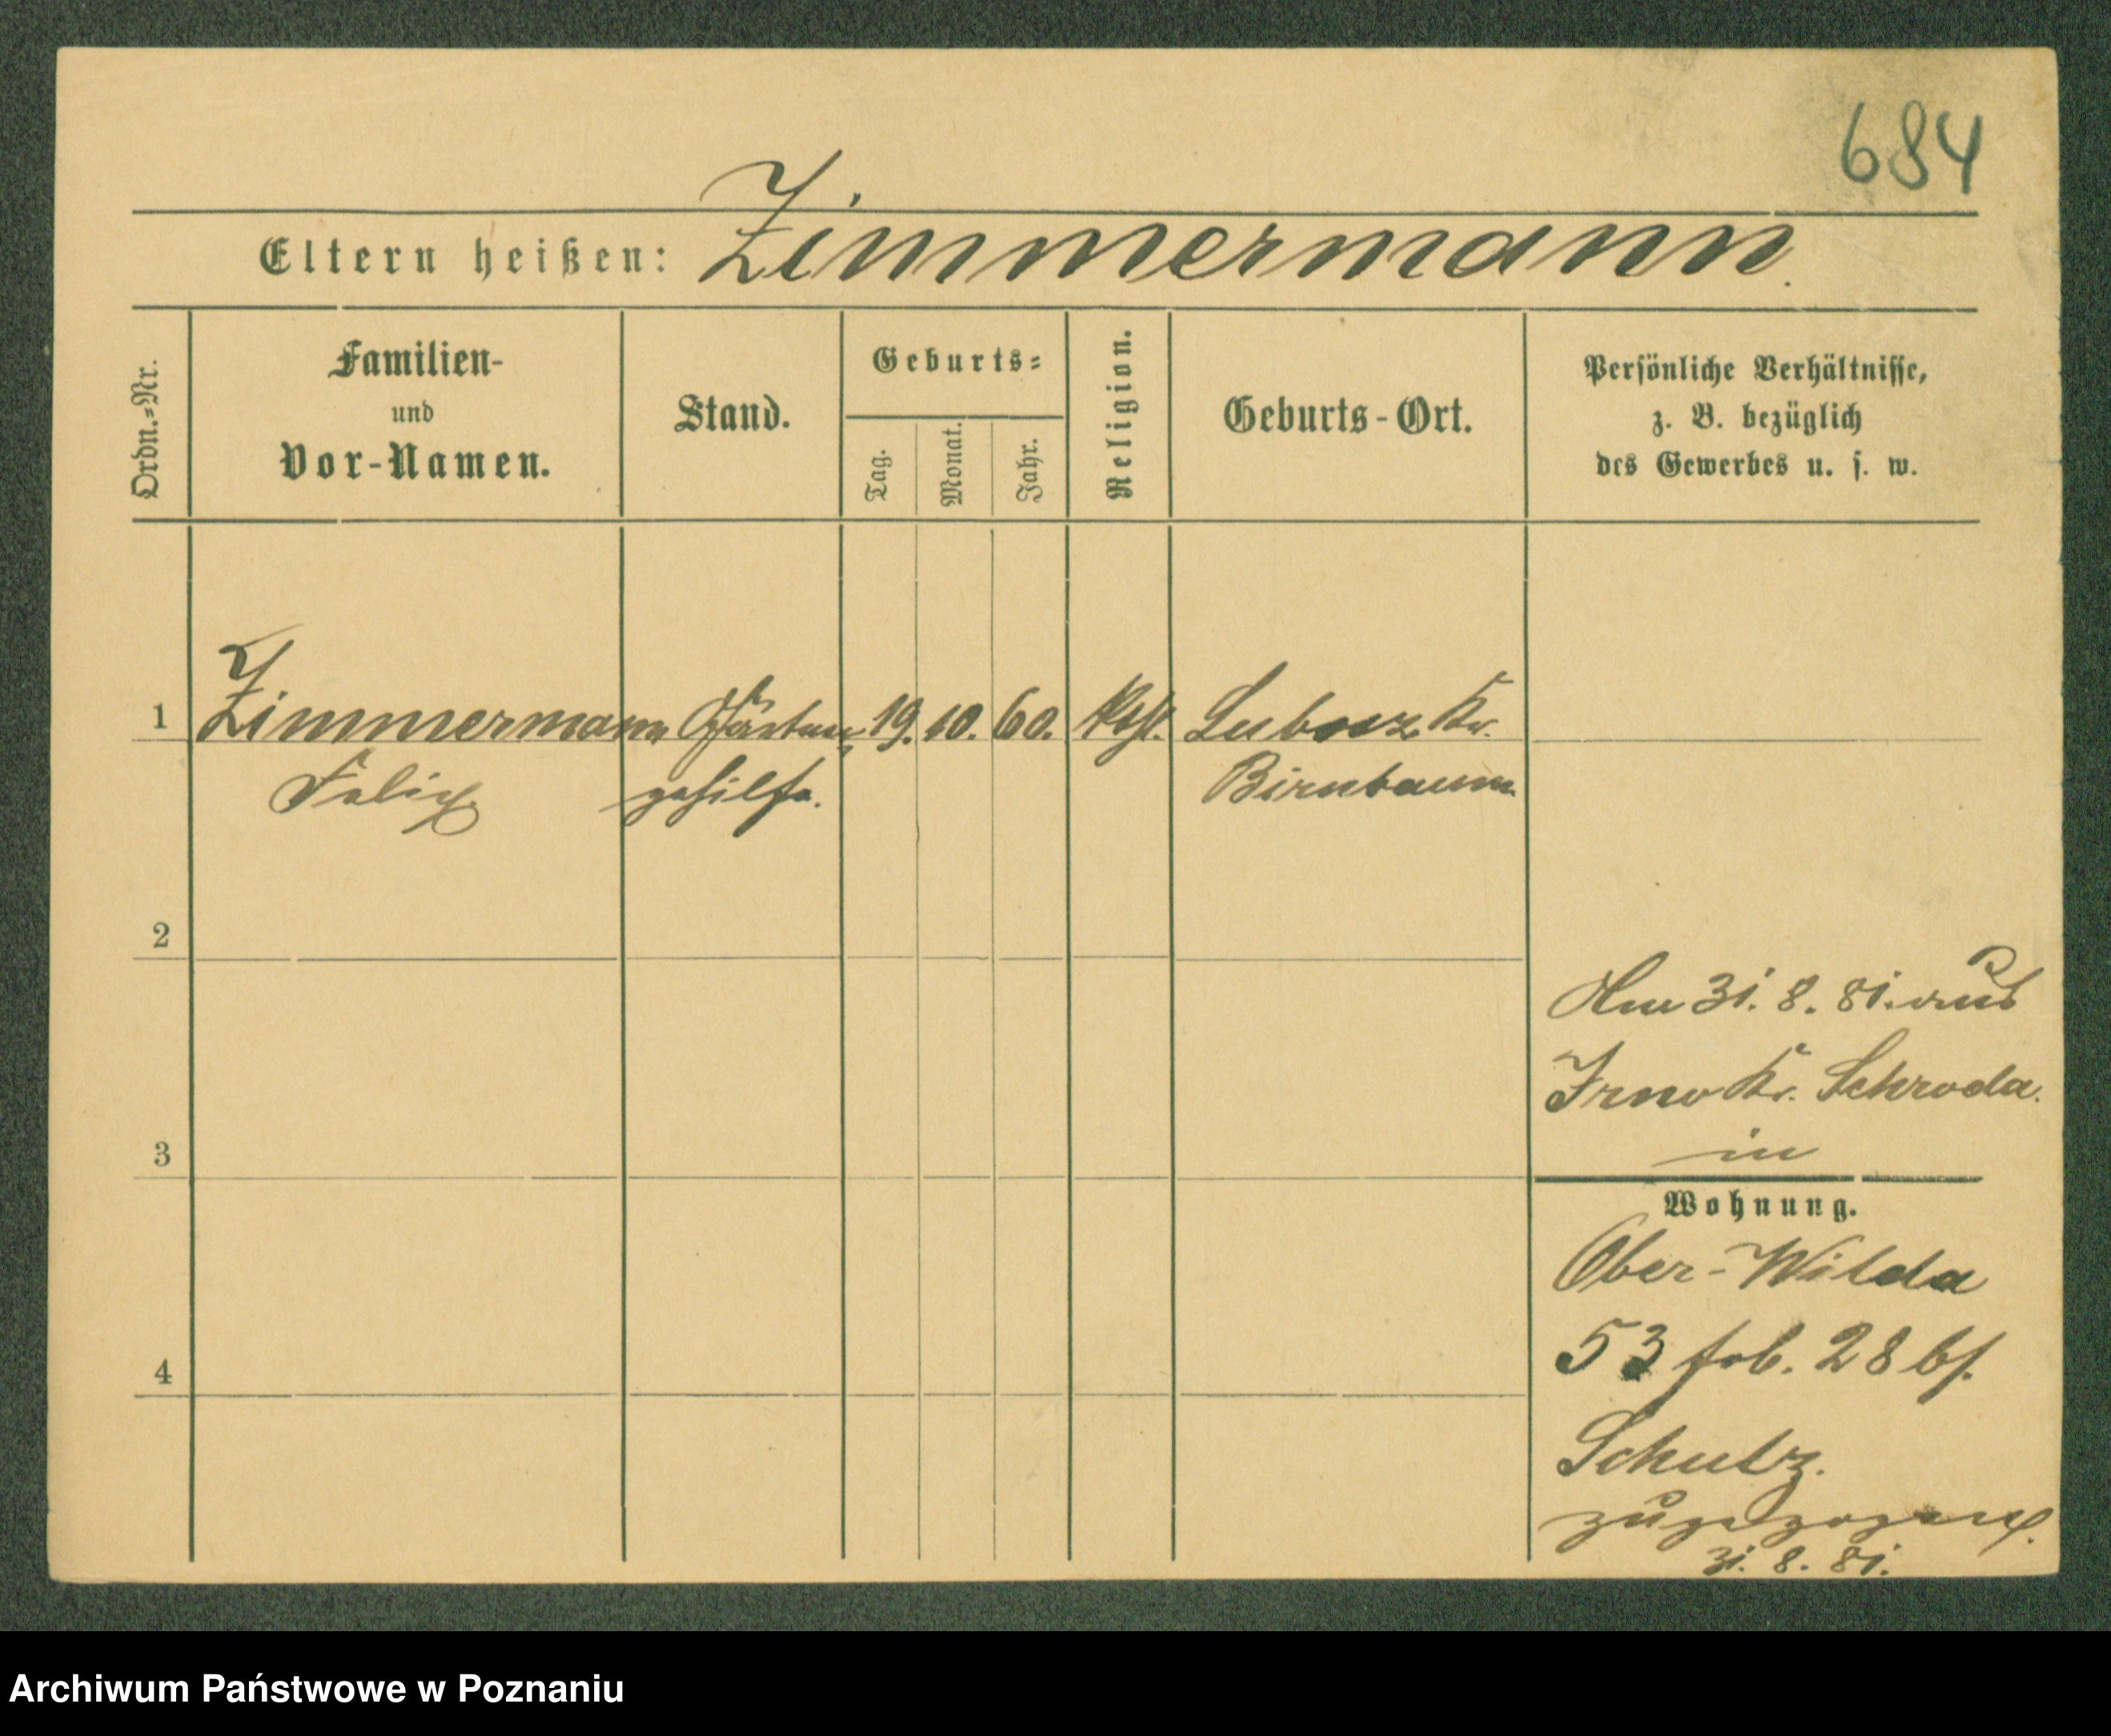 684
Eltern heißen: Zimmermann.
Ordn.=Nr.
Familien-
und
Vor-Namen.
Stand.
Geburts=
Tag.
Monat.
Jahr.
Religion.
Geburts-Ort.
Persönliche Verhältnisse,
z. B. bezüglich
des Gewerbes u. s. w.
1 Zimmermann Gärtner 19. 10. 60. Lubosz Kr.
Felix gehilfe. Birnbaum
2
Am 31. 8. 81. aus
Kr. Schroda.
3
in
Wohnung.
Ober-Wilda
53 28 bf.
4
Schulz.
zugezogen
31. 8. 81.
Archiwum Państwowe w Poznaniu